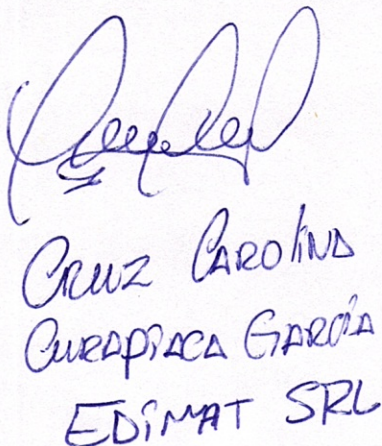 Cruz Carolina
Curapiaca García
EDIMAT SRL